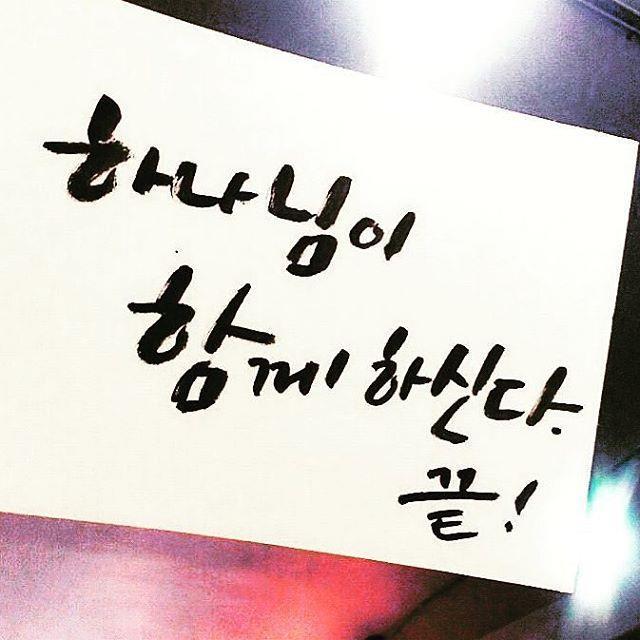 하나님이
함께 하신다.
끝!